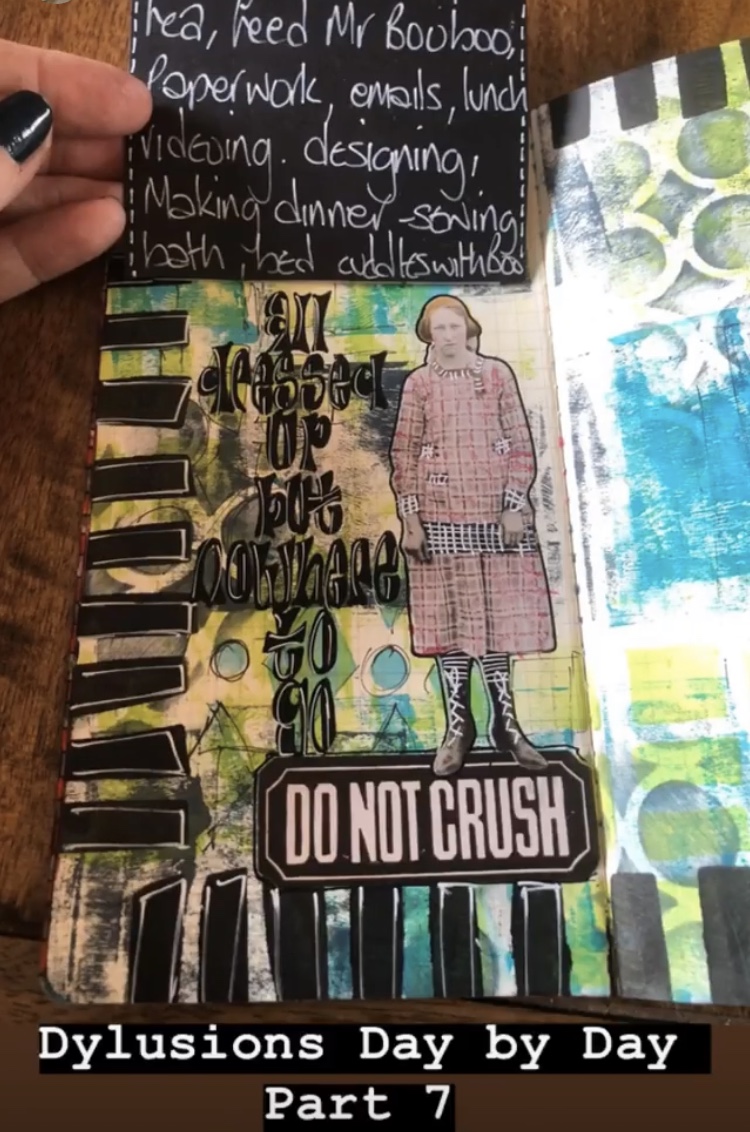 Tea, feed Mr Booboo,
Paperwork, emails, lunch
videoing. designing,
Making dinner - sewing
bath, bed cuddles with Boo
all
dressed
up
but
nowhere
to
go
DO NOT CRUSH
Dylusions Day by Day
Part 7